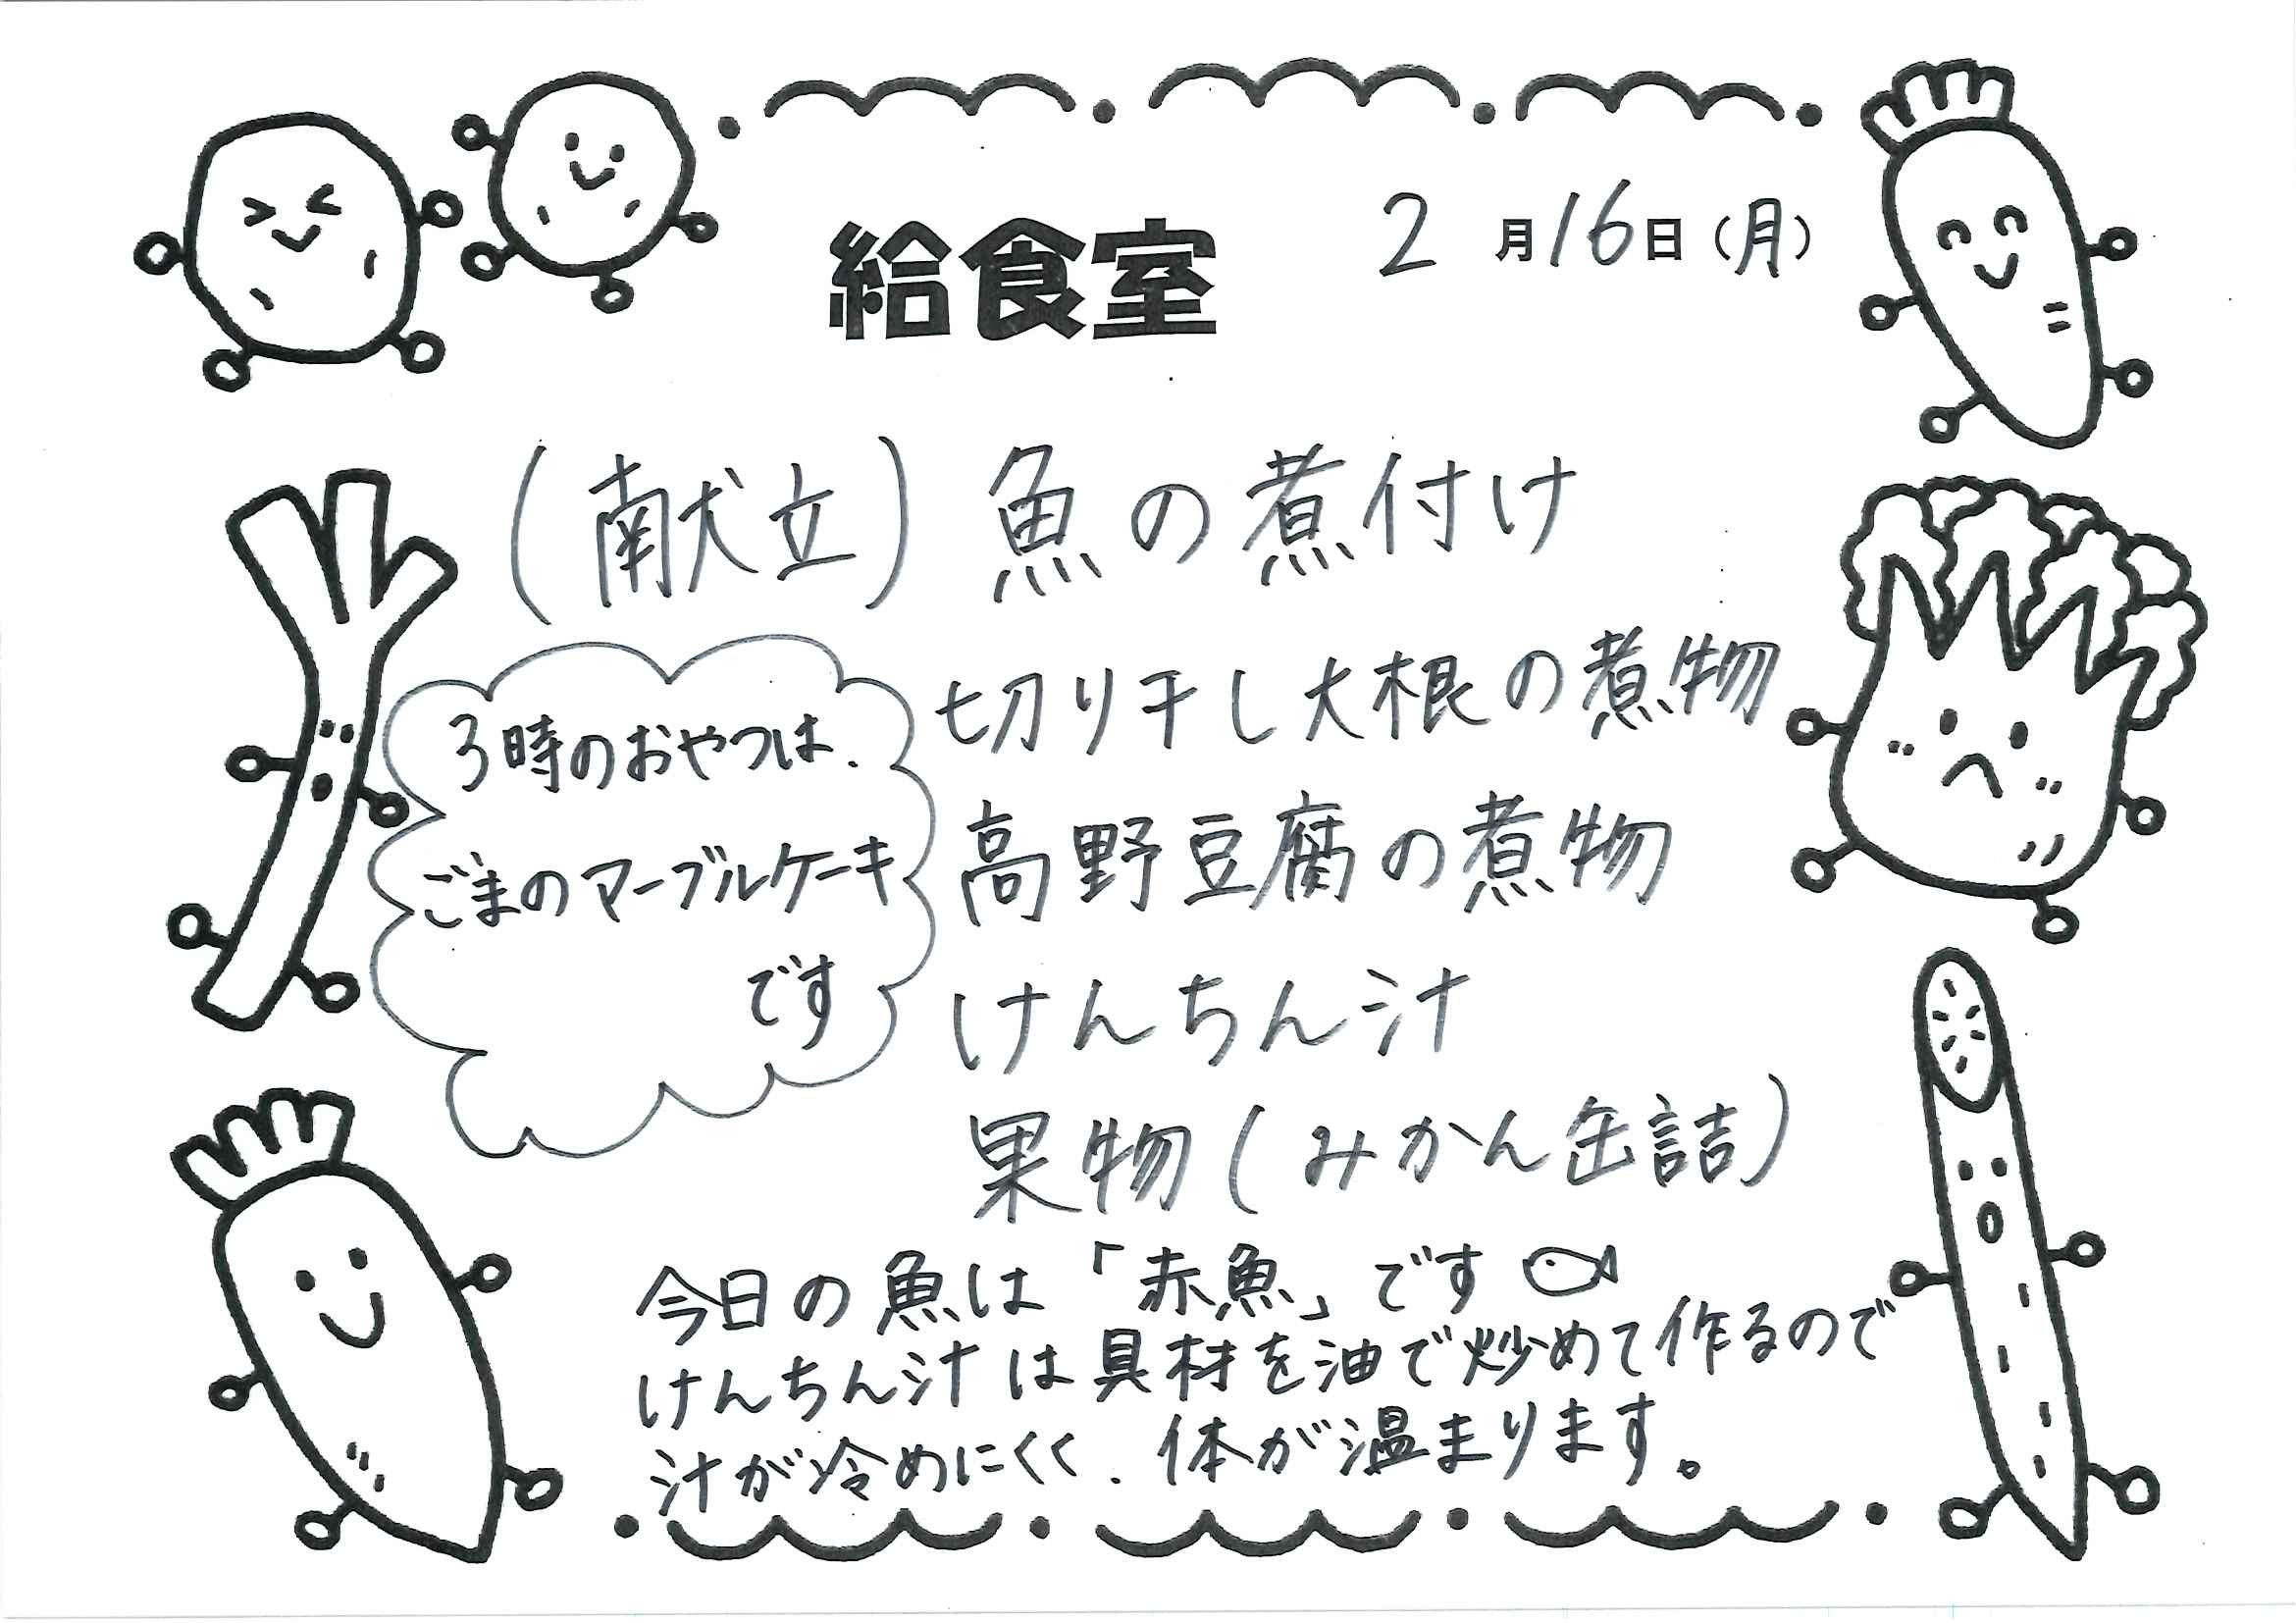 給食室
2月16日(月)
(献立) 魚の煮付け
切り干し大根の煮物
高野豆腐の煮物
けんちん汁
果物(みかん缶詰)
3時のおやつは、
ごまのマーブルケーキ
です
今日の魚は「赤魚」です
けんちん汁は具材を油で炒めて作るので
汁が冷めにくく、体が温まります。